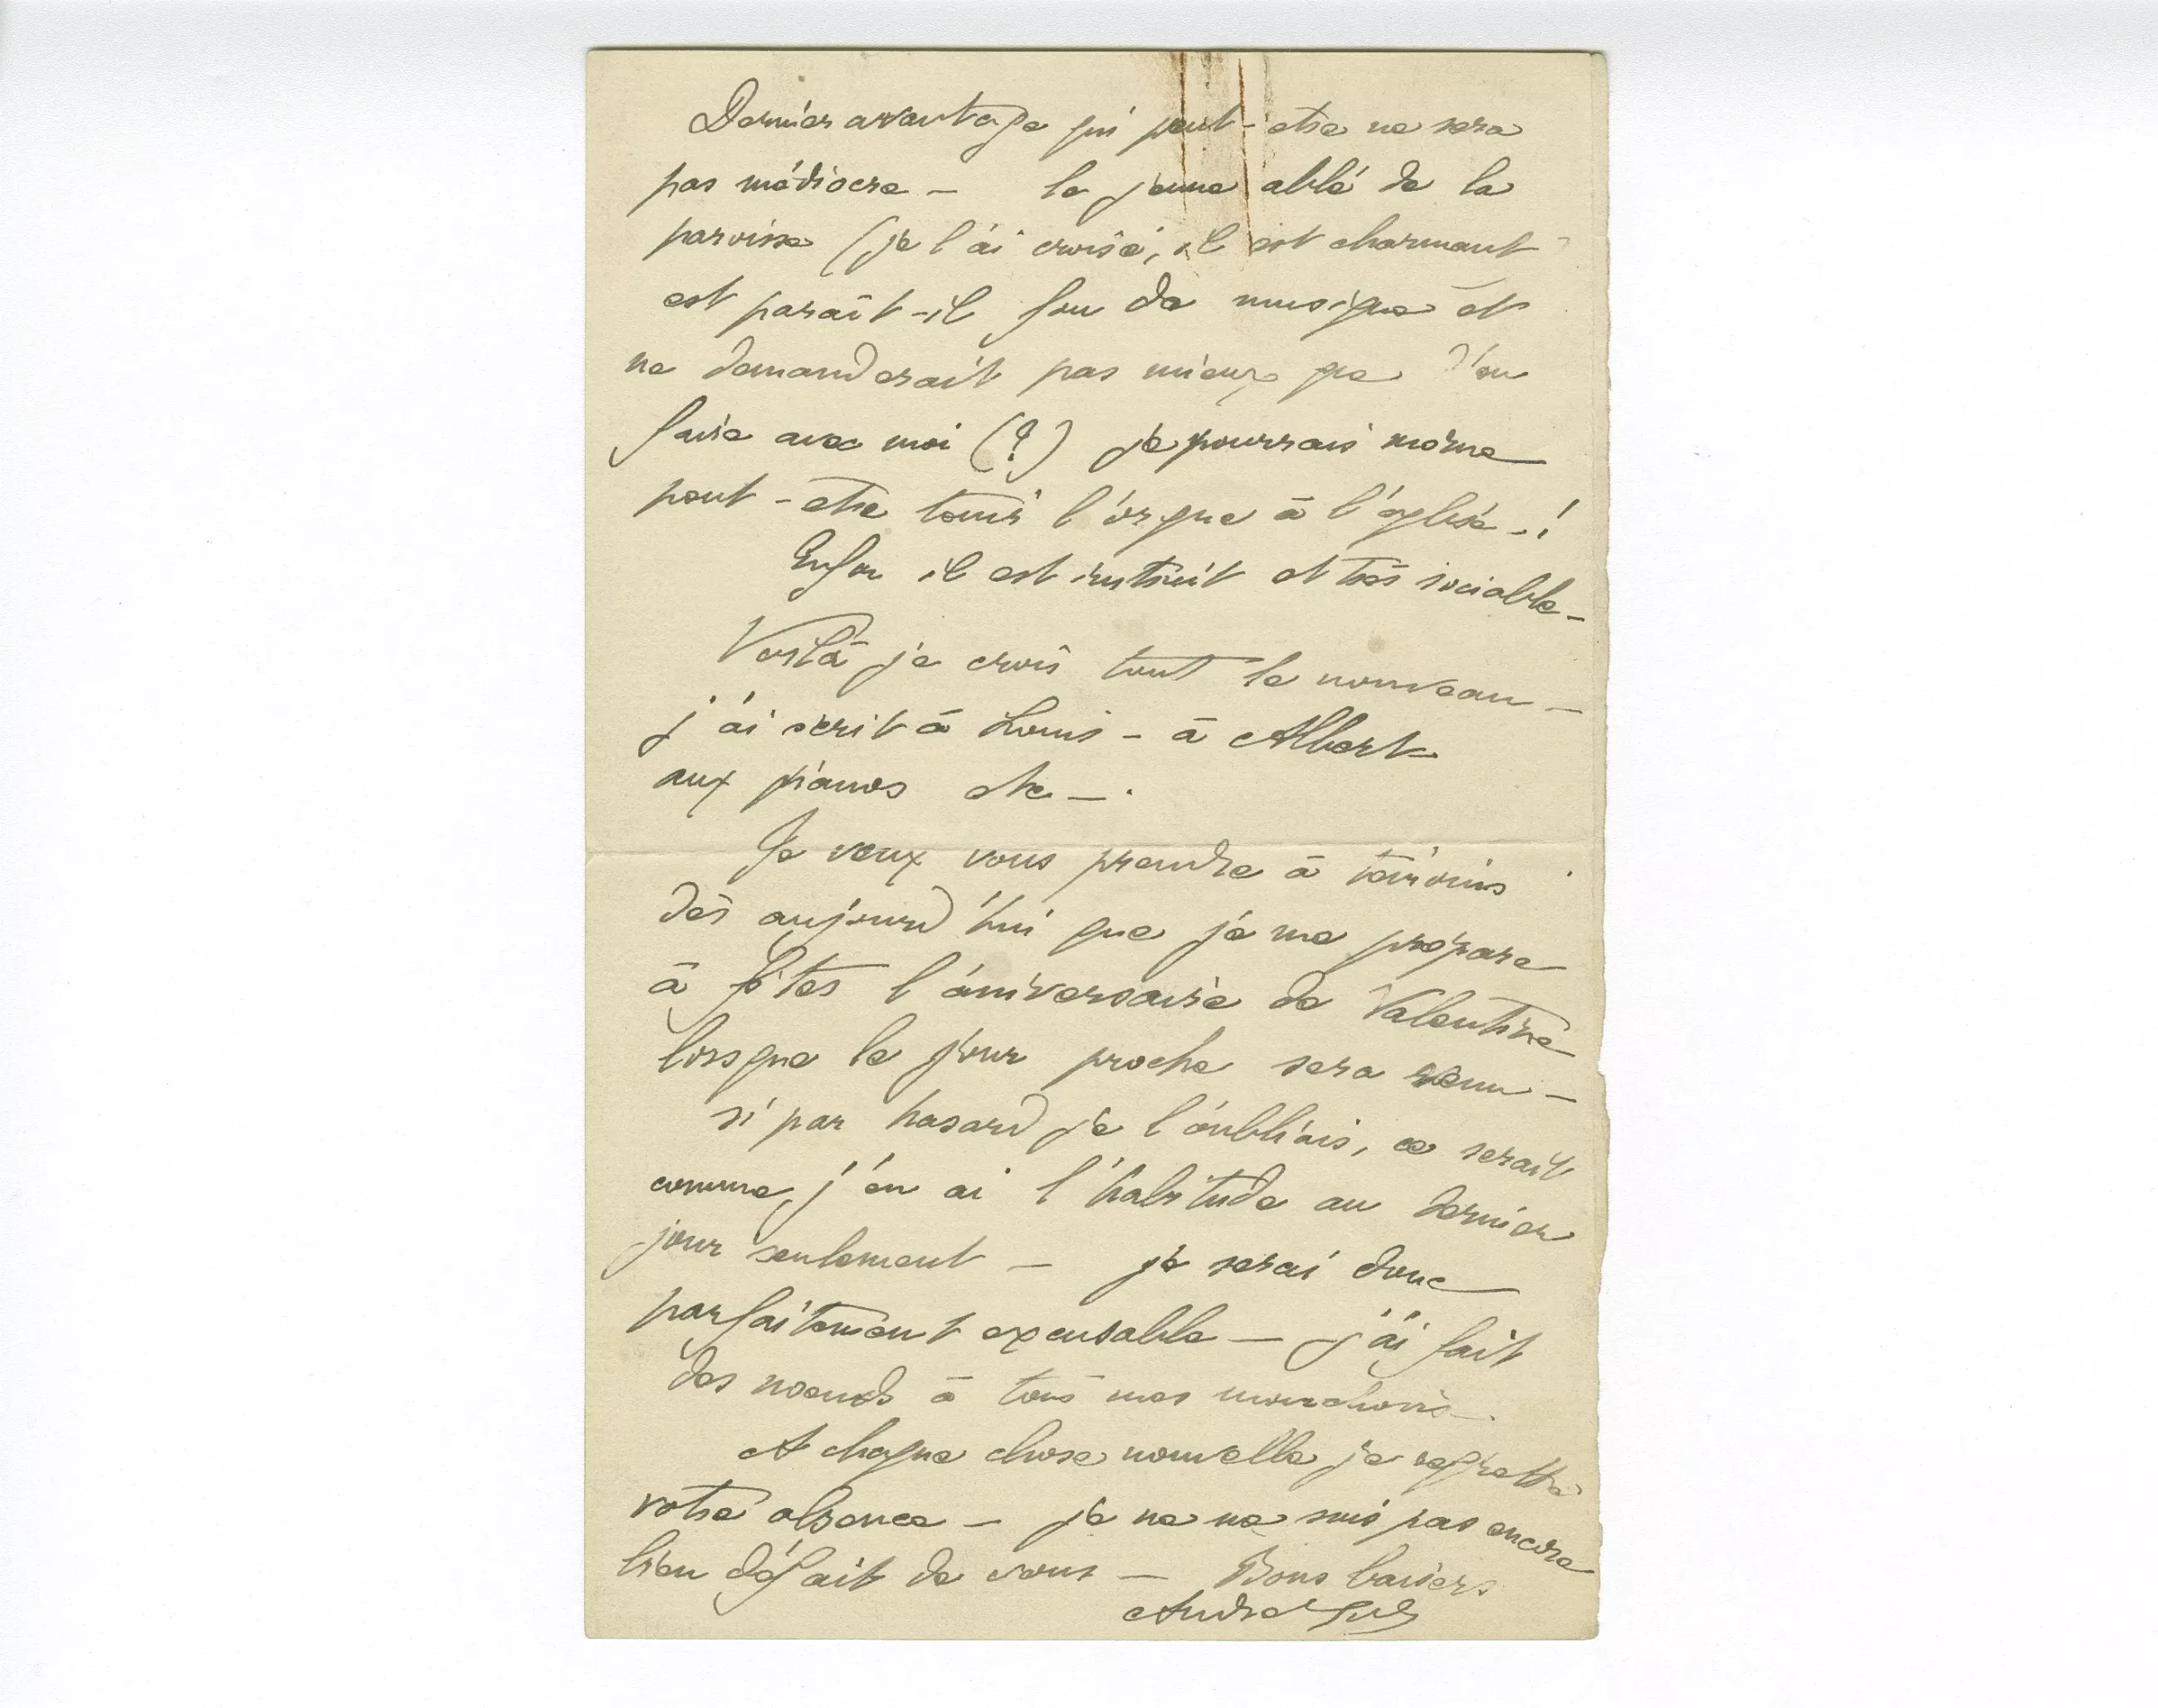 Dernier avantage qui peut-etre ne sera
pas médiocre – le jeune abbé de la
paroisse (je l'ai croisé, il est charmant
est parait-il fou de musique et
ne demanderait pas mieux que d'en
faire avec moi (?) je pourrais même
peut-etre tenir l'orgue à l'église –!
Enfin il est instruit et très sociable –
Voilà je crois tout le nouveau –
j'ai écrit à Louis – à Albert
aux pianos etc –.
Je veux vous prendre à témoins
dès aujourd'hui que je me prépare
à fêter l'aniversaire de Valentine
lorsque le jour proche sera venu –
si par hasard je l'oubliais, ce serait
comme j'en ai l'habitude au dernier
jour seulement – je serai donc
parfaitement excusable – j'ai fait
des noeuds à tous mes mouchoirs –.
A chaque chose nouvelle je regrette
votre absence – je ne me suis pas encore
bien défait de vous – Bons baisers
Andre Gide